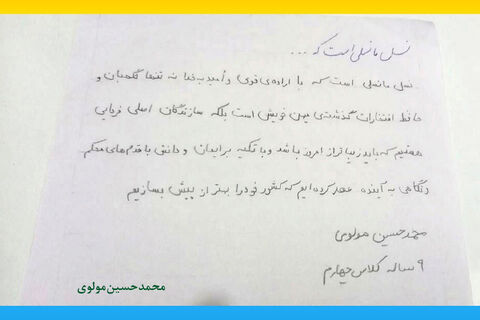 نسل ما نسلی است که ...
نسل ما نسلی است که با اراده‌ی قوی و امید به خدا نه تنها نگهبان و
حافظ افتخارات گذشته‌ی میهن خویش است بلکه سازندگان اصلی فردایی
هستیم که باید زیباتر از امروز باشد و با تکیه بر ایمان و دانش با قدم‌های محکم
و نگاهی به آینده عهد کرده ایم که کشور خود را بهتر از پیش بسازیم
محمد حسین مولوی
۹ ساله کلاس چهارم
محمد حسین مولوی